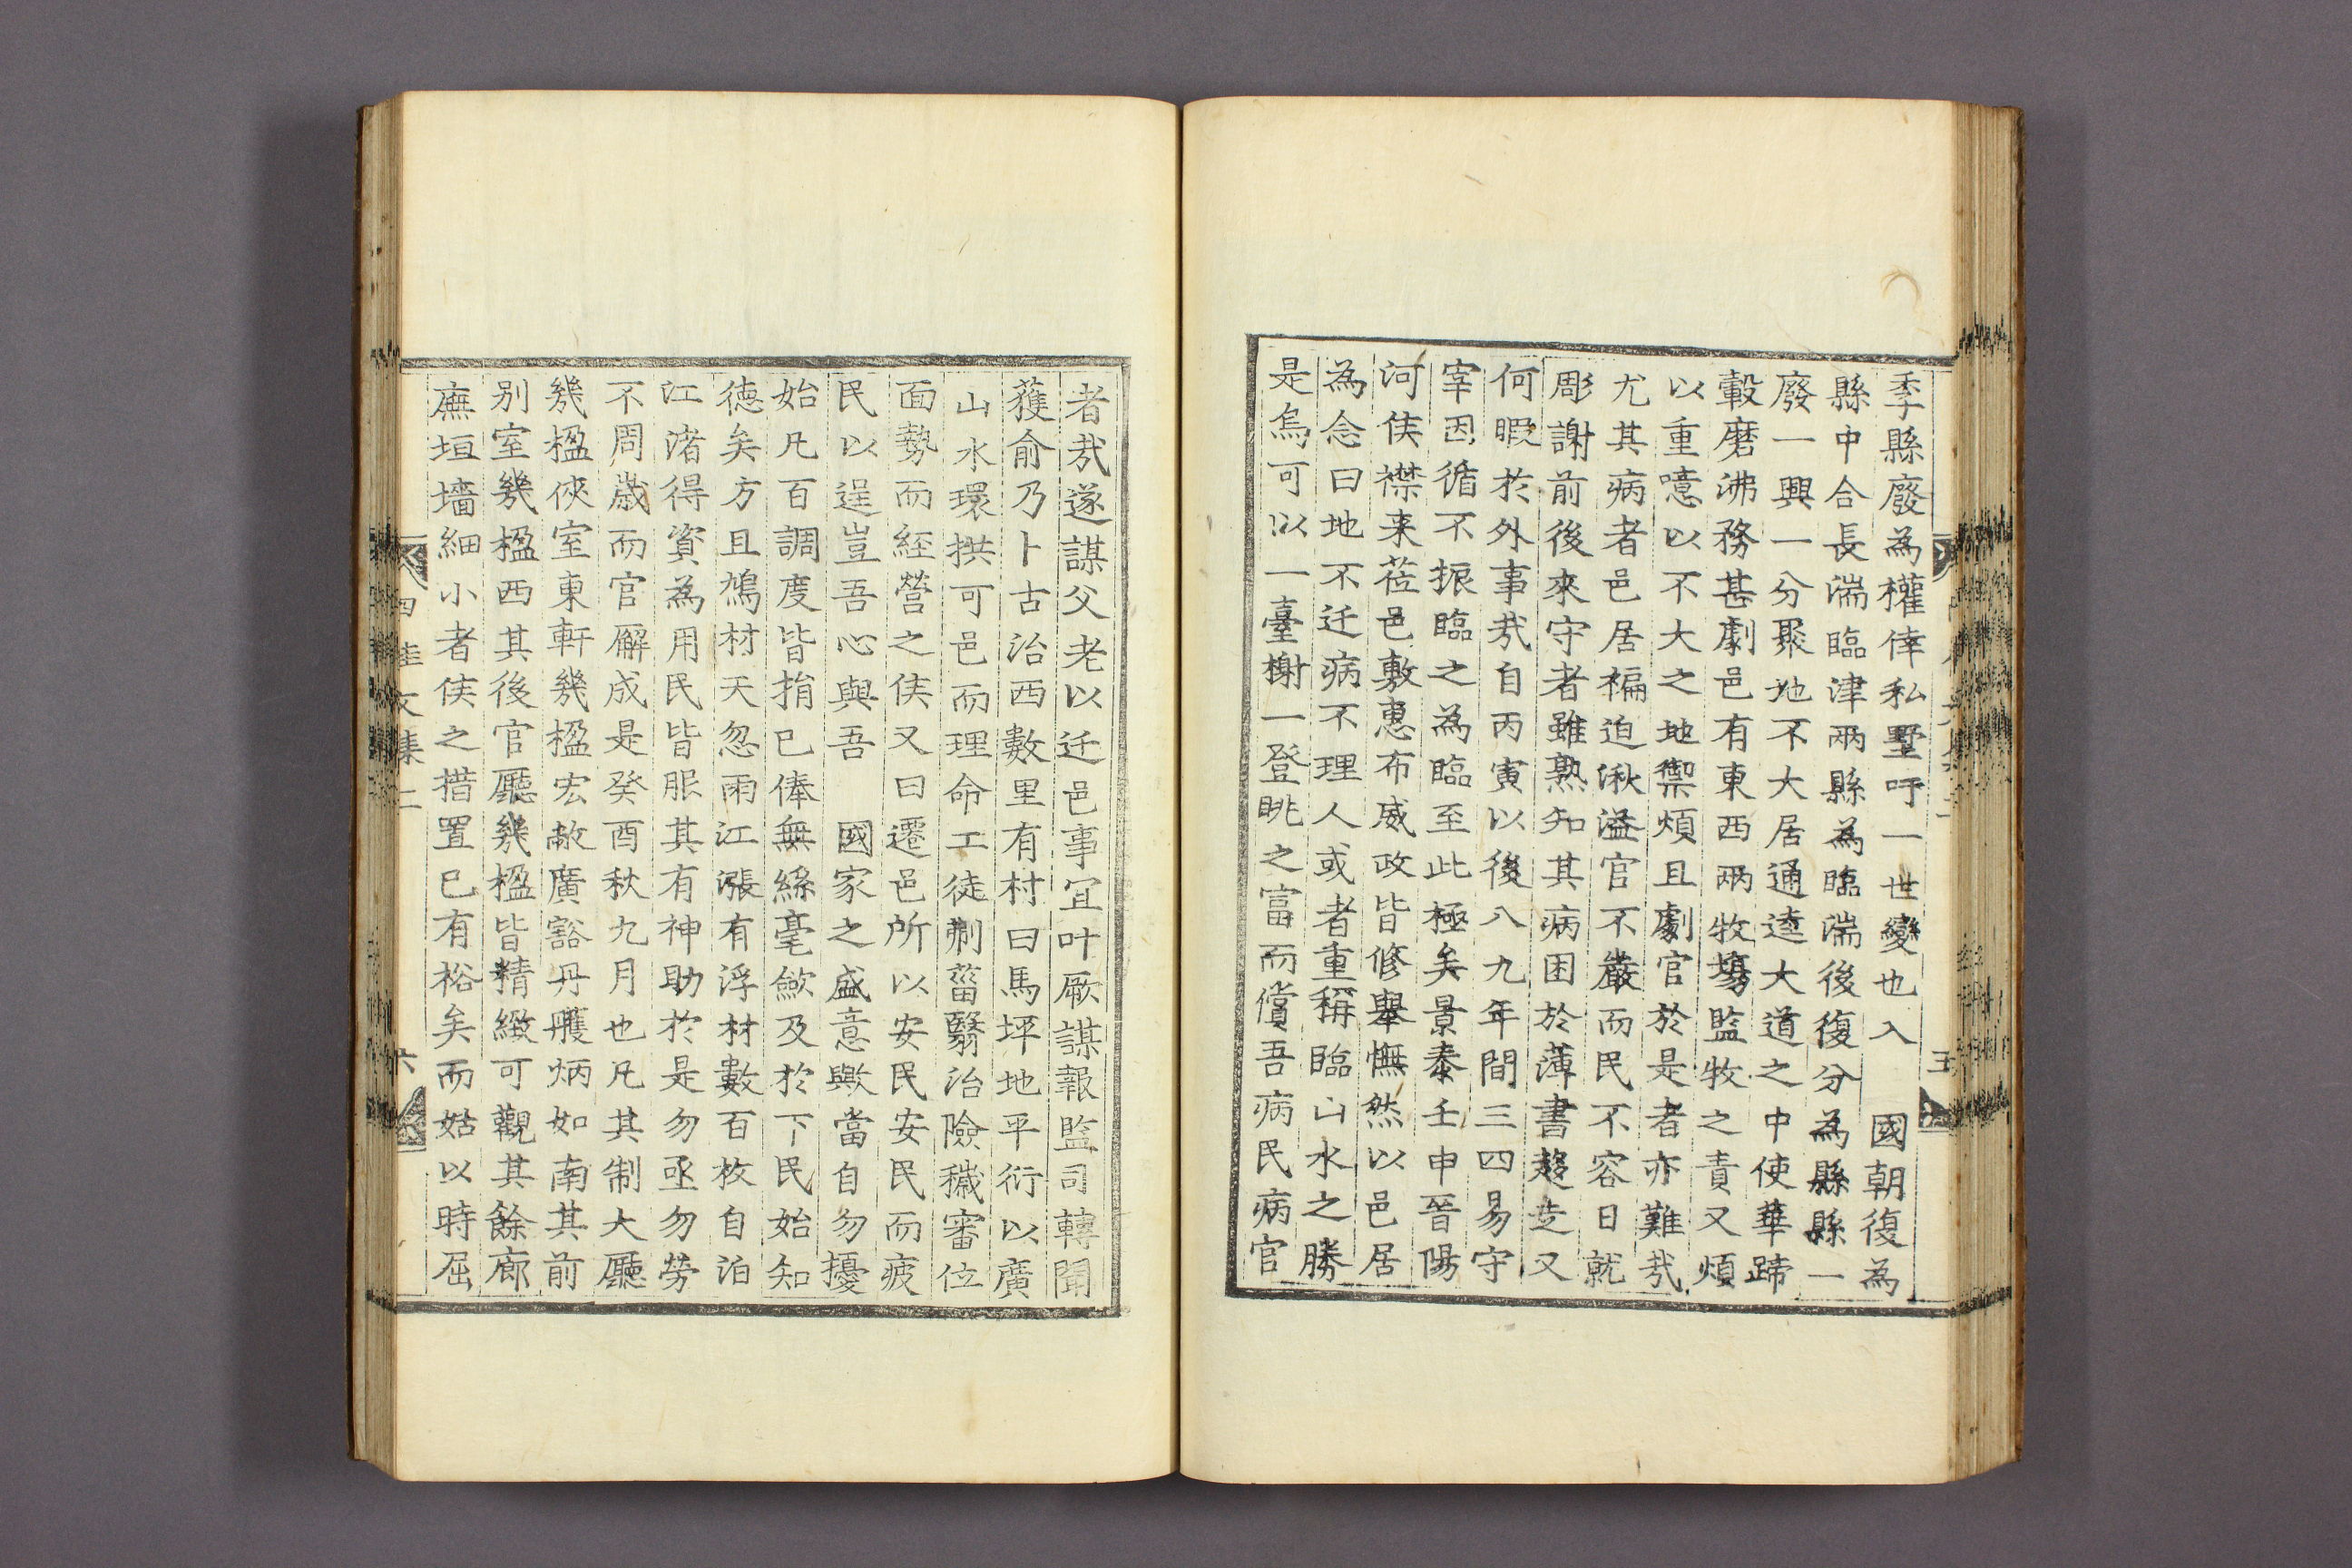 季縣廢為權倖私墅吁一世變也入　國朝復為
縣中合長湍臨津兩縣為臨湍後復分為縣縣一
廢一興一分聚地不大居通逵大道之中使華蹄
轂磨沸務甚劇邑有東西兩牧塲監牧之責又煩
以重噫以不大之地禦煩且劇官於是者亦難㢤
尤其病者邑居褊迫湫溢官不嚴而民不容日就
彫謝前後來守者雖熟知其病困於薄書趍走又
何暇於外事㢤自丙寅以後八九年間三四易守
宰因循不振臨之為臨至此極矣景泰壬申晉陽
河侯襟来莅邑敷惠布威政皆修舉憮然以邑居
為念曰地不迁病不理人或者重稱臨山水之勝
是烏可以一臺榭一登眺之富而償吾病民病官
者㢤遂謀父老以迁邑事冝叶厥謀報監司轉聞
獲俞乃卜古治西數里有村曰馬坪地平衍以廣
山水環拱可邑而理命工徒剃菑翳治險穢審位
面勢而経營之侯又曰遷邑所以安民安民而疲
民以逞豈吾心與吾　國家之盛意歟當自勿擾
始凢百調度皆捐已俸無絲毫歛及於下民始知
徳矣方且鳩材天忽雨江漲有浮材數百枚自泊
江渚得資為用民皆服其有神助於是勿亟勿勞
不周歲而官廨成是癸酉秋九月也凢其制大廳
幾楹俠室東軒幾楹宏敞廣豁丹雘炳如南其前
别室幾楹西其後官廳幾楹皆精緻可觀其餘廊
廡垣墻細小者侯之措置已有裕矣而姑以時屈
四佳文集二
六
五